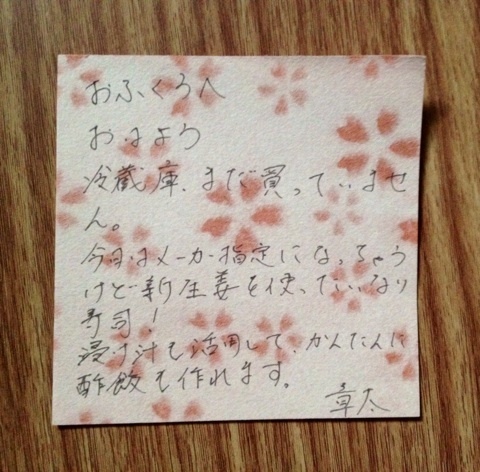 おふくろへ
おはよう
冷蔵庫、まだ買っていませ
ん。
今日はメーカー指定になっちゃう
けど新生姜を使ったいなり
寿司!
漬け汁も活用して、かんたんに
酢飯も作れます。
章太